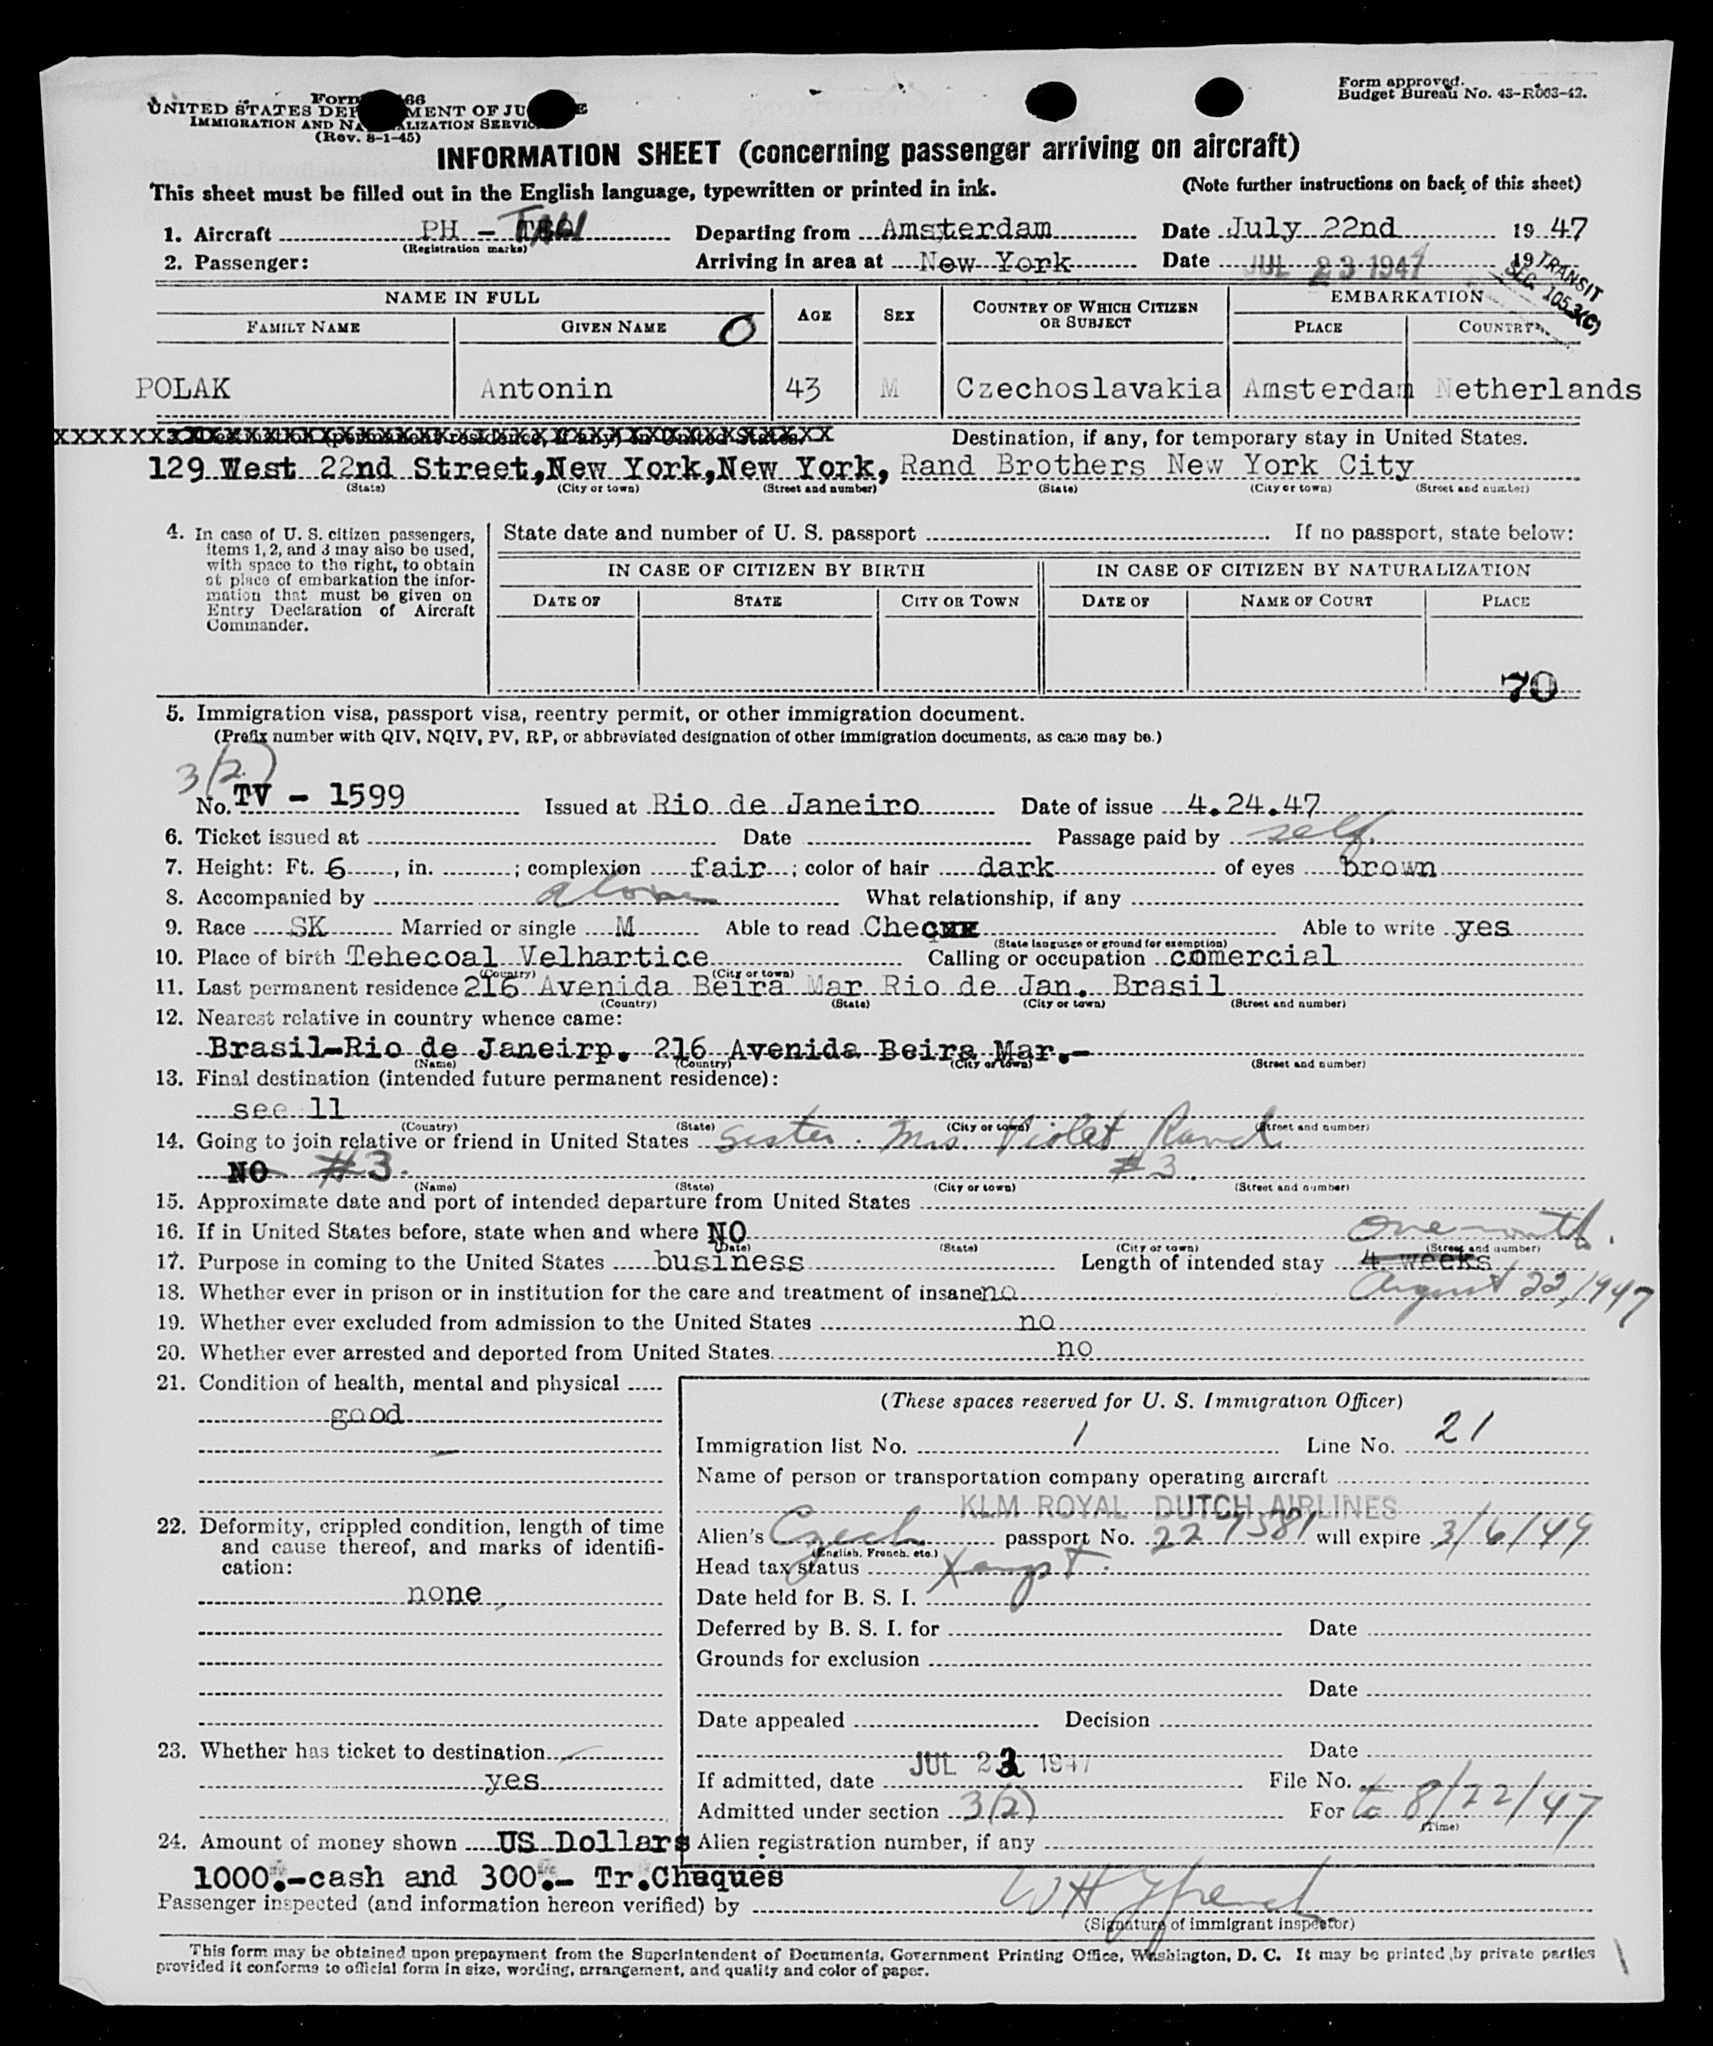 Form approved.
Budget Bureau No. 43-R063-42.
UNITED STATES DEPARTMENT OF JUSTICE
IMMIGRATION AND NATURALIZATION SERVICE
(Rev. 8-1-45)
INFORMATION SHEET (concerning passenger arriving on aircraft)
This sheet must be filled out in the English language, typewritten or printed in ink. (Note further instructions on back of this sheet)
1. Aircraft PH - Departing from Amsterdam Date July 22nd 19 47
(Registration marks)
2. Passenger: Arriving in area at New York Date JUL 23 1947 19
TRANSIT
SEC. 105.3(C)
NAME IN FULL AGE SEX COUNTRY OF WHICH CITIZEN OR SUBJECT EMBARKATION
FAMILY NAME GIVEN NAME PLACE COUNTRY
POLAK Antonin 43 M Czechoslavakia Amsterdam Netherlands
3. Destination (permanent residence, if any) in United States. Destination, if any, for temporary stay in United States.
129 West 22nd Street, New York, New York, Rand Brothers New York City
(State) (City or town) (Street and number) (State) (City or town) (Street and number)
4. In case of U. S. citizen passengers, items 1, 2, and 3 may also be used, with space to the right, to obtain at place of embarkation the information that must be given on Entry Declaration of Aircraft Commander.
State date and number of U. S. passport If no passport, state below:
IN CASE OF CITIZEN BY BIRTH IN CASE OF CITIZEN BY NATURALIZATION
DATE OF STATE CITY OR TOWN DATE OF NAME OF COURT PLACE
70
5. Immigration visa, passport visa, reentry permit, or other immigration document.
(Prefix number with QIV, NQIV, PV, RP, or abbreviated designation of other immigration documents, as case may be.)
3(2)
No. TV - 1599 Issued at Rio de Janeiro Date of issue 4.24.47
6. Ticket issued at Date Passage paid by self.
7. Height: Ft. 6, in. ; complexion fair ; color of hair dark of eyes brown
8. Accompanied by alone What relationship, if any
9. Race SK Married or single M Able to read Chec Able to write yes
(State language or ground for exemption)
10. Place of birth Tehecoal Velhartice Calling or occupation comercial
(Country) (City or town)
11. Last permanent residence 216 Avenida Beira Mar Rio de Jan. Brasil
(Country) (State) (City or town) (Street and number)
12. Nearest relative in country whence came:
Brasil-Rio de Janeirp. 216 Avenida Beira Mar.-
(Name) (Country) (City or town) (Street and number)
13. Final destination (intended future permanent residence):
see 11
(Country) (State) (City or town) (Street and number)
14. Going to join relative or friend in United States sister. Mrs. Violet Rand
NO #3. #3.
(Name) (State) (City or town) (Street and number)
15. Approximate date and port of intended departure from United States
16. If in United States before, state when and where NO one month.
(Date) (State) (City or town) (Street and number)
17. Purpose in coming to the United States business Length of intended stay 4 weeks
18. Whether ever in prison or in institution for the care and treatment of insane no August 22, 1947
19. Whether ever excluded from admission to the United States no
20. Whether ever arrested and deported from United States no
21. Condition of health, mental and physical
good
22. Deformity, crippled condition, length of time and cause thereof, and marks of identification:
none
23. Whether has ticket to destination
yes
24. Amount of money shown US Dollars
1000.-cash and 300.- Tr.Cheques
(These spaces reserved for U. S. Immigration Officer)
Immigration list No. 1 Line No. 21
Name of person or transportation company operating aircraft
KLM ROYAL DUTCH AIRLINES
Alien's Czech passport No. 221581 will expire 3/6/49
(English, French, etc.)
Head tax status
Date held for B. S. I.
Deferred by B. S. I. for Date
Grounds for exclusion
Date
Date appealed Decision
Date
If admitted, date JUL 23 1947 File No.
Admitted under section 3(2) For to 8/22/47
(Time)
Alien registration number, if any
Passenger inspected (and information hereon verified) by
(Signature of immigrant inspector)
This form may be obtained upon prepayment from the Superintendent of Documents, Government Printing Office, Washington, D. C. It may be printed by private parties
provided it conforms to official form in size, wording, arrangement, and quality and color of paper.